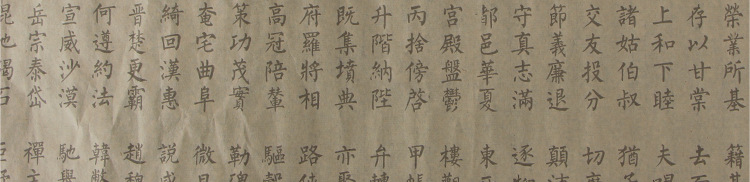 榮業所基 籍
存以甘棠 去
上和下睦 夫
諸姑伯叔 猶
交友投分 切
節義廉退 顛
守真志滿 逐
都邑華夏 東
宮殿盤鬱 樓
丙捨傍啓 甲
升階納陛 弁
既集墳典 亦
府羅將相 路
高冠陪輦 驅
策功茂實 勒
奄宅曲阜 微
綺回漢惠 説
晉楚更霸 趙
何遵約法 韓
宣威沙漠 馳
岳宗泰岱 禪
昆池碣石